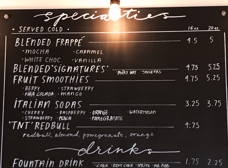 specialties
• SERVED COLD • 16oz 20oz
BLENDED FRAPPÉ 4.5 5
• MOCHA • CARAMEL
• WHITE CHOC. • VANILLA
BLENDED 'SIGNATURES' 4.75 5.25
FRUIT SMOOTHIES 4.75 5.25
• BERRY • STRAWBERRY
• PINA COLADA • MANGO
ITALIAN SODAS 3.25 3.75
• CHERRY • RASPBERRY • ORANGE WATERMELON
• STRAWBERRY • PEACH • POMEGRANATE
'TNT' REDBULL 4.75
redbull, almond, pomegranate, orange
drinks
FOUNTAIN DRINK 1.75 2.25